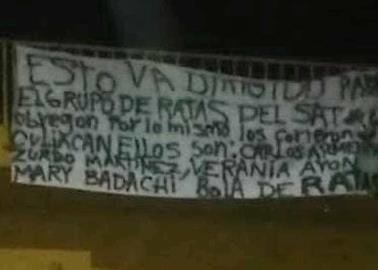 ESTO VA DIRIGIDO PARA
EL GRUPO DE RATAS DEL SAT
obregon Por lo mismo los corrieron
CULIACAN ELLOS SON: CARLOS
ZURDO MARTINEZ, VERANIA AYON
MARY BADACHI BOLA DE RATAS